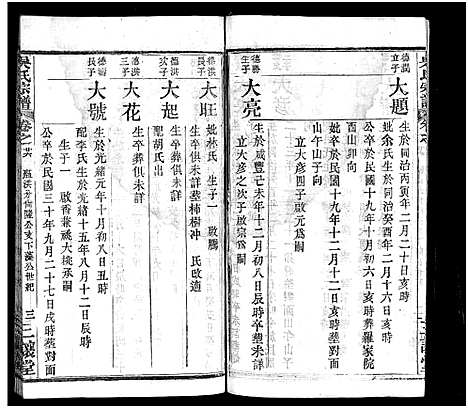 吳氏宗譜
德潤立子 大題
生於同治丙寅年二月二十日亥時
妣余氏生於同治癸酉年二月十六日亥時
公卒於民國十九年十二月初六日亥時葬羅家院
酉山卯向
妣卒於民國十九年十二月十二日亥時葬對面
山午山子向
立大彥四子啟元爲嗣
德勝生子 大亮
生於咸豐己未年十二月初八日辰時卒塟未詳
立大彥之次子啟宗爲嗣
德洪長子 大旺
妣林氏 生子一 啟騰
生卒俱未詳塟柿樹沖 氏改適
德洪次子 大起
生卒葬俱未詳
配胡氏出
德洪三子 大花
生卒葬俱未詳
德長子 大號
生於光緒元年十月初八日丑時
配李氏生於光緒十五年八月十二日辰時
生子一 啟香兼祧大桃承嗣
公卒於民國三十年九月二十七日戌時塟對面
吳氏宗譜 卷之廿六
三
讓堂